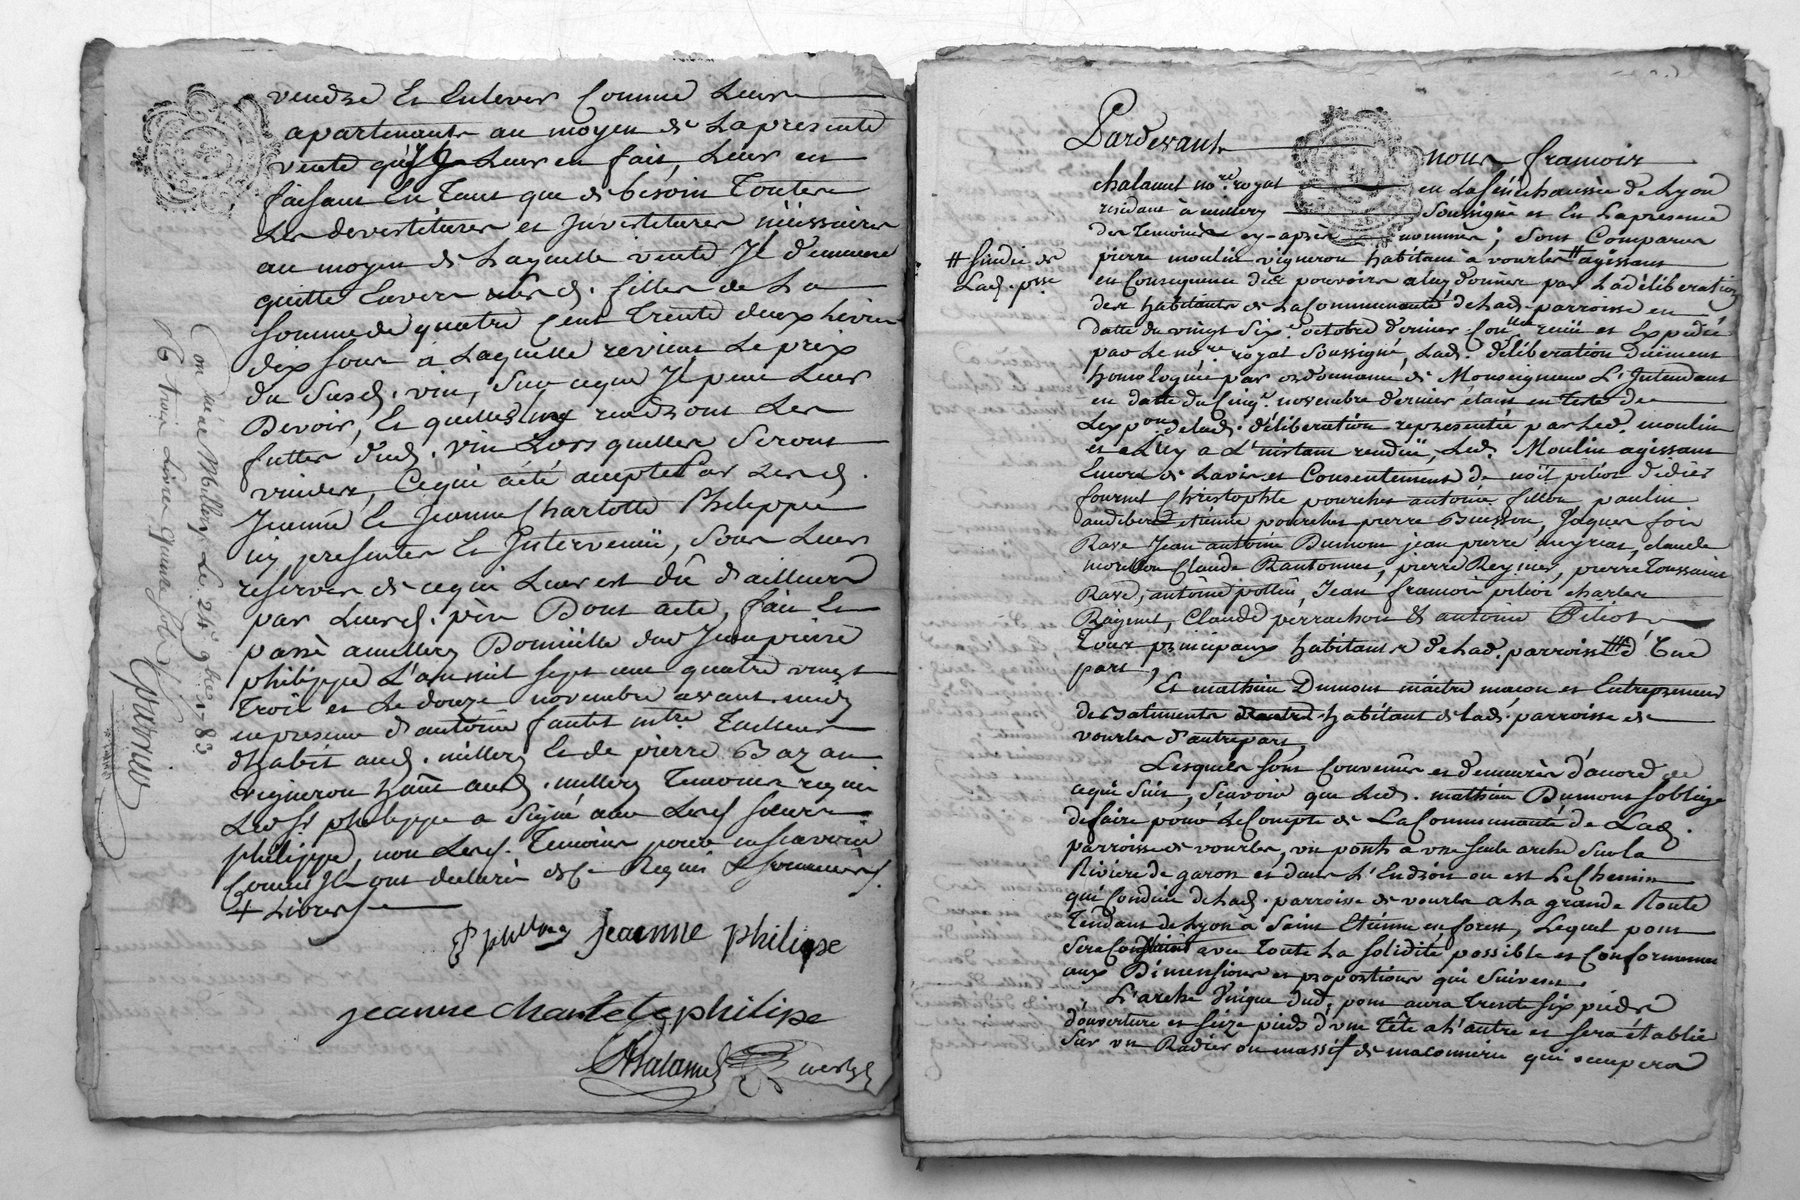 vendre Et Enlever Comme Leurs
apartenants au moyen de La presente
vente qu'il Leur en fait, Leur en
faisant En Tant que de besoin Toutes
Les devestitures et Investitures néissaires
au moyen de Laquelle vente Il demeure
quitte Envers Lesd. filles de La
somme de quatre Cent Trente deux livres
dix sous a Laquelle revient Le prix
du Susd. vin, Sur ceque Il peut Leur
Devoir, Et quelles rendront Les
futtes dud. vin Lors quelles Seront
vuides, Cequi a été accepté Par Lesd.
Jeanne Et Jeanne Charlotte Philippe
icy presentes Et Intervenüe, Sous Leurs
reserves de cequi Leur est dû d'ailleurs
par Leurd. père Dont acte, fait Et
passé a millery Domicille dud Jean pierre
philippe L'an mil sept cent quatre vingt
Trois et Le douze novembre avant midy
en presence d'antoine fautis mtre Tailleur
d'habit aud. millery Et de pierre Bazan
vigneron habt aud. millery Temoins requis
Led Sr. philippe a Signé avec Lesd soeurs
philippe, non Lesd. Temoins pour ne scavoir
Comme Ils ont declaré de ce Requis & sommés.
+ Livres
P philippe jeanne philipe
jeanne charlote philipe
Chalamel
Con. né a Millery Le 24e 9bre 1783
Trois Livres quinze sols
Pardevant nous francois
chalamel nore. royal en La Sénéchaussée de Lyon
residant à millery Soussigné et En La presence
des Temoins cy-après nommés; Sont Comparus
pierre moulin vigneron habitant a vourles # agissant
# sindic de
Lad. psse
en Consequence des pouvoirs a luy donnés par La déliberation
des habitants de La Communauté de Lad. parroisse en
datte du vingt Six octobre dernier reçüe et Expediée
par Le nore royal Soussigné, Lad. déliberation Duëment
homologuée par ordonnance de Monseigneur L'Intendant
en datte du Cinq novembre dernier etant en Tete de
L'expon de lad. déliberation representée par Led. moulin
et a Luy a L'instant rendüe, Led. Moulin agissant
Encore de L'avis et Consentement de noët pitiot didier
fournet Christophle pourchet antoine fillon paulin
audibert etienne pourchet pierre Buisson, Jaques fois
Rave Jean antoine Dumont jean pierre meyrat, claude
morellon Claude Rantonnet, pierre Reynier, pierre Toussaint
Rave, antoine pottin, Jean francois pitiot charles
Raginet, Claude perrachon & antoine Pitiot
Tous principaux habitants de Lad. parroisse d'Une
part,
Et mathieu Dumont maitre maçon et Entrepreneur
de Batiments habitant de lad. parroisse de
vourles d'autre part,
Lesquels sont Convenus et demeurés d'acord de
cequi Suit, Scavoir que Led. mathieu Dumont s'oblige
de faire pour Le Compte de La Communauté de Lad.
parroisse de vourles, un pont a une seule arche Sur la
Riviere de garon et dans L'Endroit ou est Le Chemin
qui Conduit de Lad. parroisse de vourles a la grande Route
Tendant de Lyon à Saint Etienne en forest, Lequel pont
Sera Construit avec Toute La Solidité possible et Conformement
aux Dimensions et proportions qui Suivent.
L'arche Unique dud. pont aura Trente Six pieds
d'ouverture et Seize pieds d'une Tête a L'autre et sera établie
Sur un Radier ou massif de maconnerie qui occupera